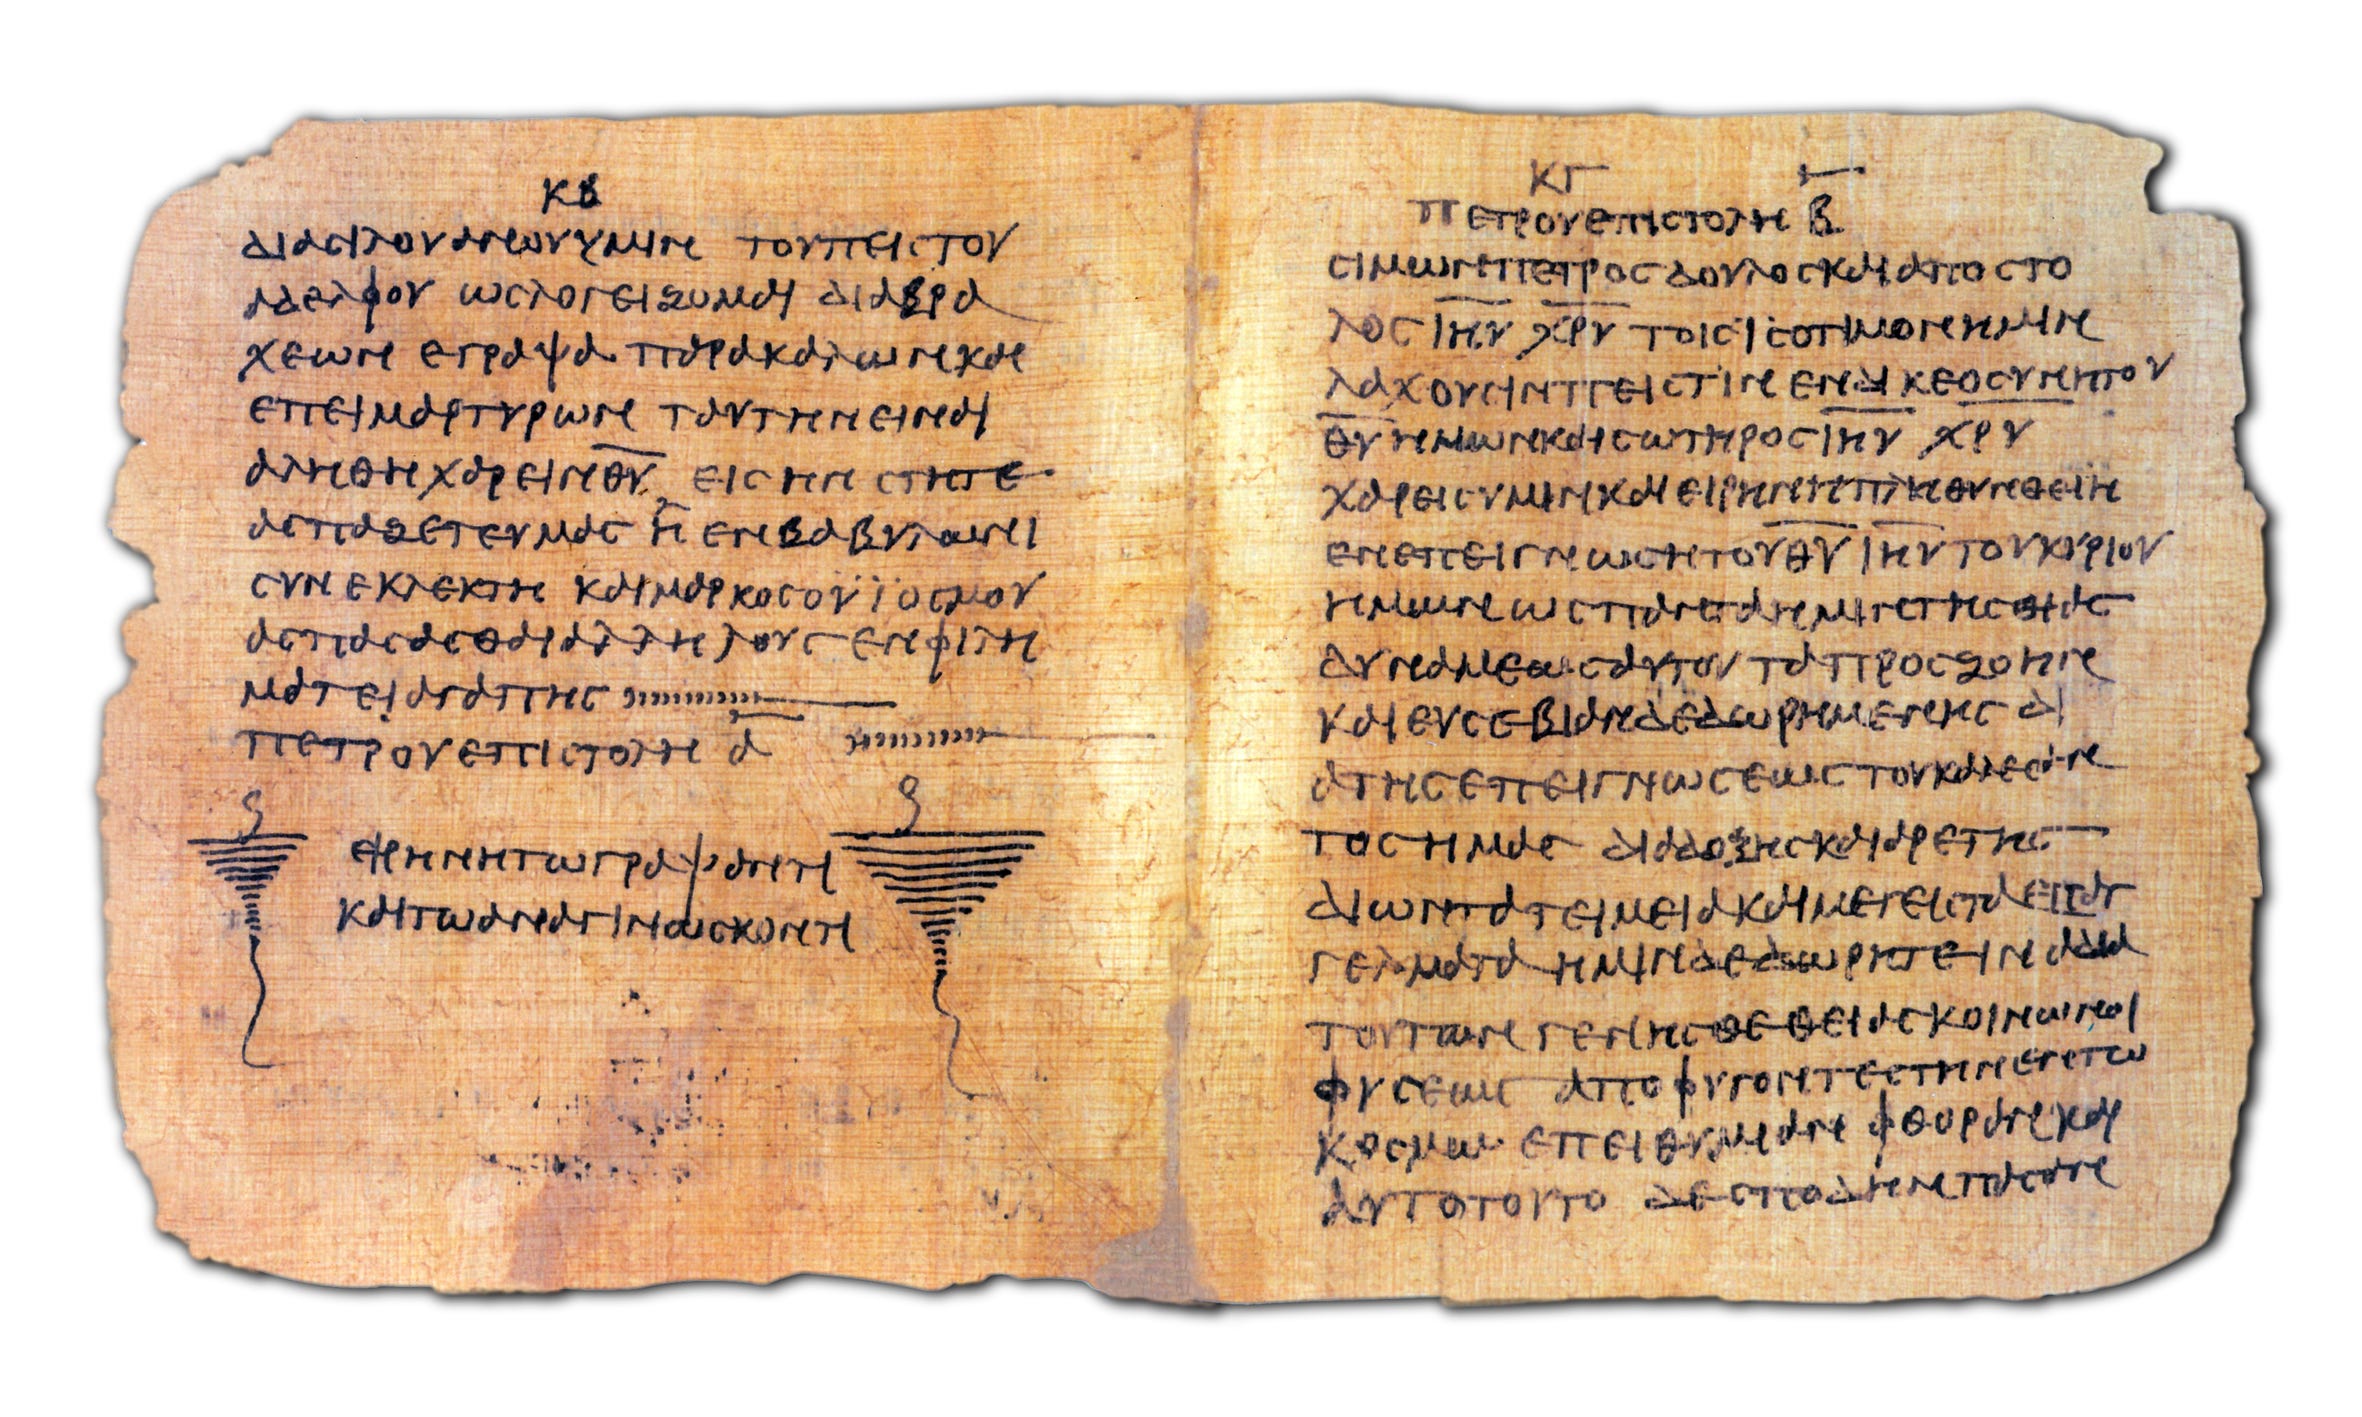 ΚΒ
ΔΙΑCΙΛΟΥΑΝΟΥΥΜΙΝ ΤΟΥΠΕΙCΤΟΥ
ΑΔΕΛΦΟΥ ΩCΛΟΓΕΙΖΟΜΑΙ ΔΙΑΒΡΑ
ΧΕΩΝ ΕΓΡΑΨΑ ΠΑΡΑΚΑΛΩΝΚΑΙ
ΕΠΕΙΜΑΡΤΥΡΩΝ ΤΑΥΤΗΝΕΙΝΑΙ
ΑΛΗΘΗΧΑΡΕΙΝΘ̅Υ̅ ΕΙCΗΝ CΤΗΤΕ
ΑCΠΑΖΕΤΕΥΜΑC Η ΕΝΒΑΒΥΛΩΝΙ
CΥΝΕΚΛΕΚΤΗ ΚΑΙΜΑΡΚΟCΟΥΪΟCΜΟΥ
ΑCΠΑCΑCΘΑΙΑΛΛΗΛΟΥC ΕΝΦΙΛΗ
ΜΑΤΕΙΑΓΑΠΗC
ΠΕΤΡΟΥΕΠΙCΤΟΛΗ Α̅
ΕΙΡΗΝΗΤΩΓΡΑΨΑΝΤΙ
ΚΑΙΤΩΑΝΑΓΙΝΩCΚΟΝΤΙ
ΚΓ
ΠΕΤΡΟΥΕΠΙCΤΟΛΗ Β̅
CΙΜΩΝΠΕΤΡΟCΔΟΥΛΟCΚΑΙΑΠΟCΤΟ
ΛΟCΙ̅Η̅Υ̅ Χ̅Ρ̅Υ̅ ΤΟΙCΪCΟΤΙΜΟΝΗΜΙΝ
ΛΑΧΟΥCΙΝΠΕΙCΤΙΝ ΕΝΔΙΚΕΟCΥΝΗΤΟΥ
Θ̅Υ̅ΗΜΩΝΚΑΙCΩΤΗΡΟCΙ̅Η̅Υ̅ Χ̅Ρ̅Υ̅
ΧΑΡΕΙCΥΜΙΝΚΑΙΕΙΡΗΝΗΠΛΗΘΥΝΘΕΙΗ
ΕΝΕΠΕΙΓΝΩCΗΤΟΥΘ̅Υ̅ Ι̅Η̅Υ̅ΤΟΥΚΥΡΙΟΥ
ΗΜΩΝ ΩCΠΑΝΤΑΗΜΙΝΤΗCΘΙΑC
ΔΥΝΑΜΕΩCΑΥΤΟΥ ΤΑΠΡΟCΖΟΗΝ
ΚΑΙΕΥCΕΒΙΑΝΔΕΔΩΡΗΜΕΝΗC ΔΙ
ΑΤΗCΕΠΕΙΓΝΩCΕΩC ΤΟΥΚΑΛΕCΑΝ
ΤΟCΗΜΑC ΔΙΑΔΟΞΗCΚΑΙΑΡΕΤΗC
ΔΙΩΝΤΑΤΕΙΜΕΙΑΚΑΙΜΕΓΕΙCΤΑΕΠΑΓ
ΓΕΛΜΑΤΑ ΗΜΙΝΔΕΔΩΡΗΤΕΙΝΑΔΙΑ
ΤΟΥΤΩΝ ΓΕΝΗCΘΕΘΕΙΑCΚΟΙΝΩΝΟΙ
ΦΥCΕΩC ΑΠΟΦΥΓΟΝΤΕCΤΗΝΕΝΤΩ
ΚΟCΜΩ ΕΠΕΙΘΥΜΙΑΝ ΦΘΟΡΑΝ ΚΑΙ
ΑΥΤΟΤΟΥΤΟ ΔΕCΠΟΔΗΝΠΑCΑΝ